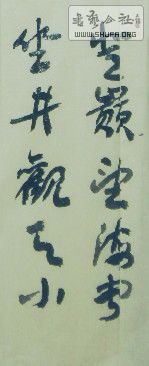 書藝公社
WWW.SHUFA.ORG
登巔望海
坐井觀天小